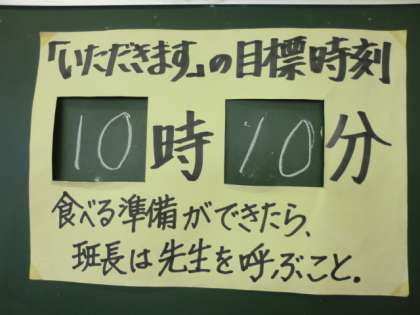 「いただきます」の目標時刻
10時10分
食べる準備ができたら、
班長は先生を呼ぶこと.